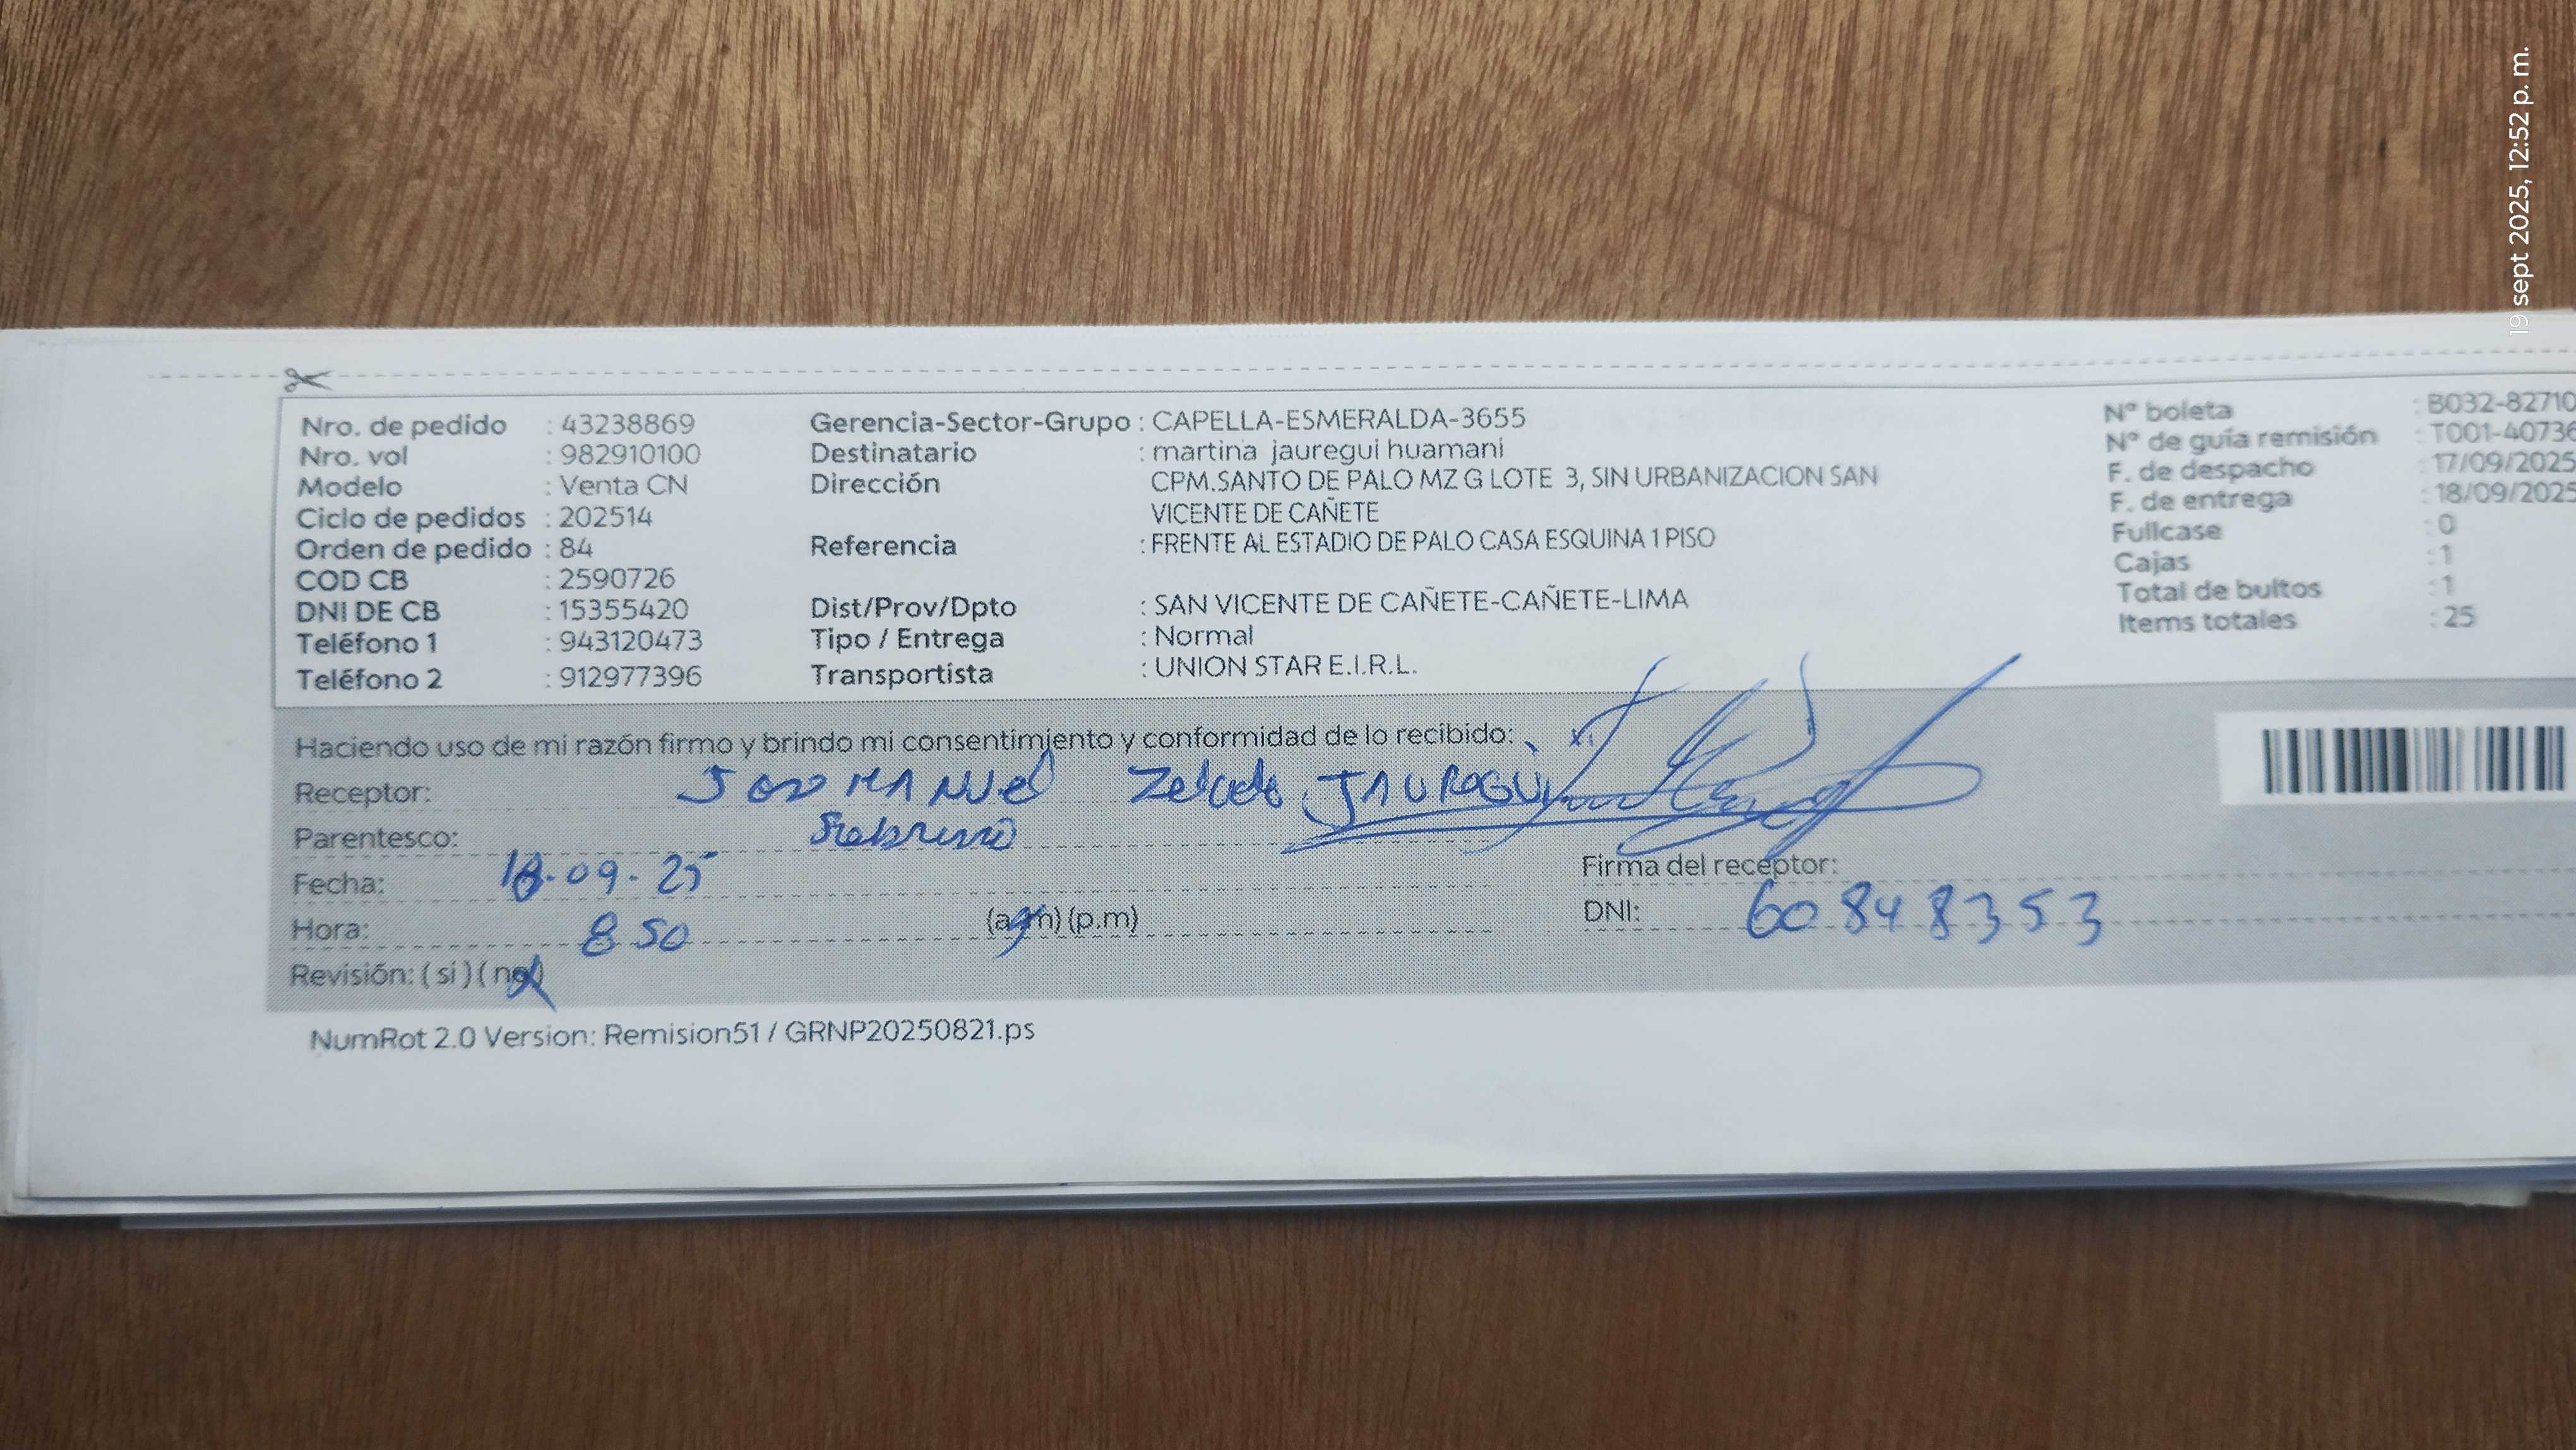 19 sept 2025, 12:52 p. m.
Nro. de pedido : 43238869
Nro. vol : 982910100
Modelo : Venta CN
Ciclo de pedidos : 202514
Orden de pedido : 84
COD CB : 2590726
DNI DE CB : 15355420
Teléfono 1 : 943120473
Teléfono 2 : 912977396
Gerencia-Sector-Grupo : CAPELLA-ESMERALDA-3655
Destinatario : martina jauregui huamani
Dirección CPM.SANTO DE PALO MZ G LOTE 3, SIN URBANIZACION SAN
VICENTE DE CAÑETE
Referencia : FRENTE AL ESTADIO DE PALO CASA ESQUINA 1 PISO
Dist/Prov/Dpto : SAN VICENTE DE CAÑETE-CAÑETE-LIMA
Tipo / Entrega : Normal
Transportista : UNION STAR E.I.R.L.
N° boleta : B032-82710
N° de guía remisión : T001-40736
F. de despacho : 17/09/2025
F. de entrega : 18/09/2025
Fullcase : 0
Cajas : 1
Total de bultos : 1
Items totales : 25
Haciendo uso de mi razón firmo y brindo mi consentimiento y conformidad de lo recibido:
Receptor: MANUel JAUREGUI
Parentesco:
Fecha: 18-09-25
Hora: 8 50 (a.m) (p.m)
Revisión: ( si ) ( no )
Firma del receptor:
DNI: 60848353
NumRot 2.0 Version: Remision51 / GRNP20250821.ps